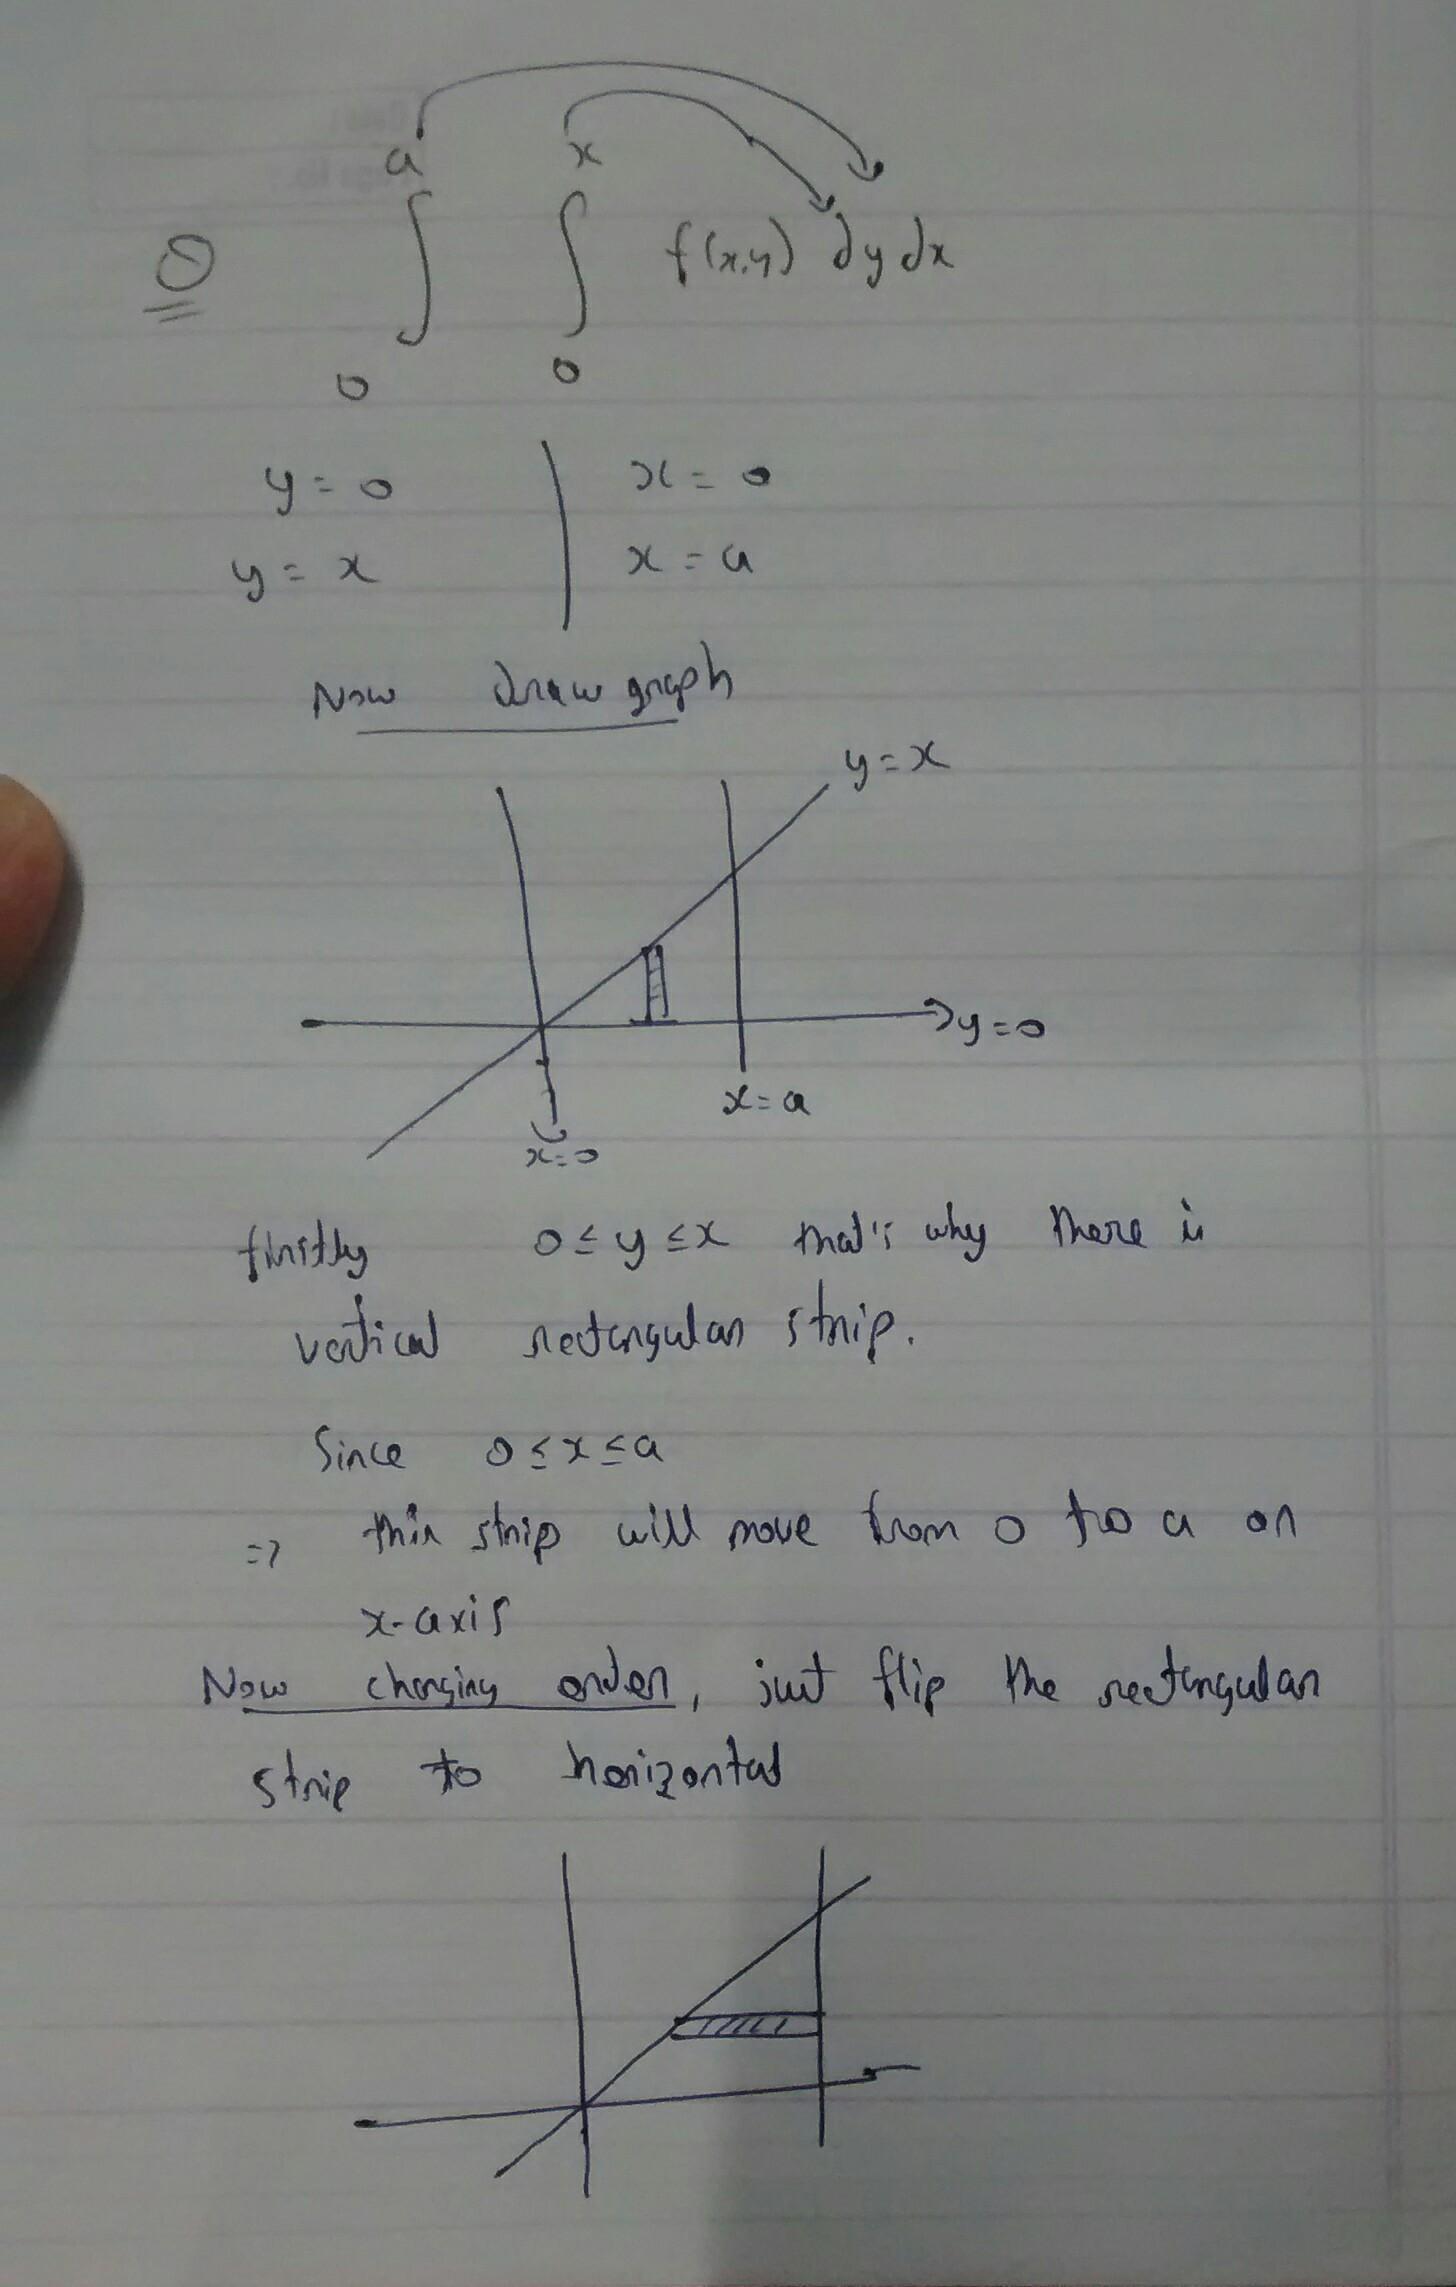 a x
Q ∫ ∫ f(x,y) dy dx
0 0
y = 0 | x = 0
y = x | x = a
Now draw graph
y = x
y = 0
x = a
x = 0
firstly 0 ≤ y ≤ x that's why there is
vertical rectangular strip.
Since 0 ≤ x ≤ a
=> this strip will move from 0 to a on
x-axis
Now changing order, just flip the rectangular
strip to horizontal